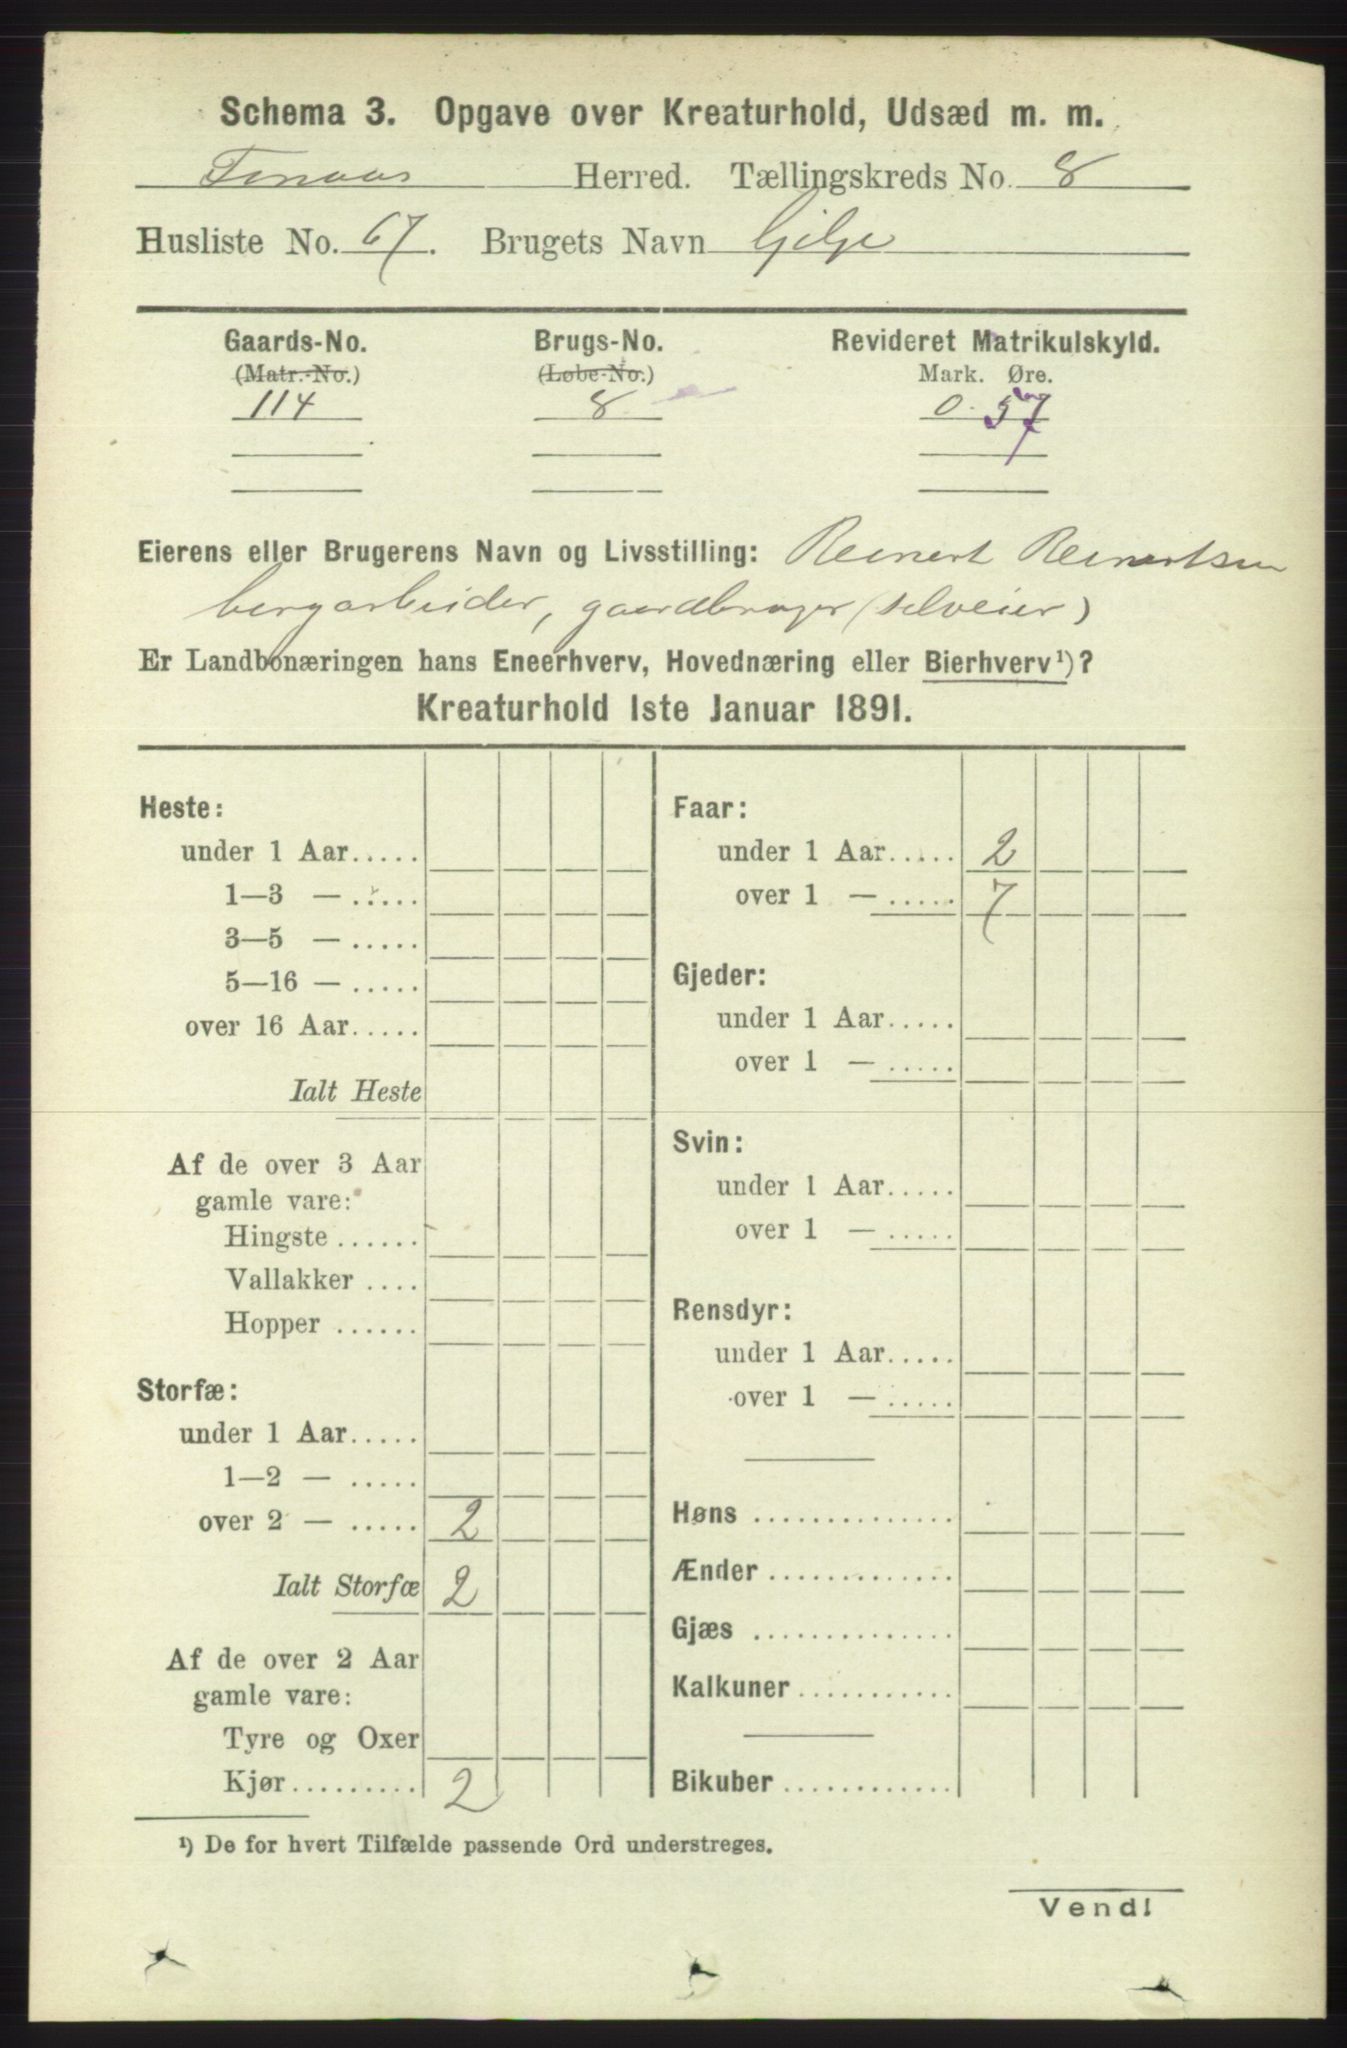 Schema 3. Opgave over Kreaturhold, Udsæd m. m.
Finaas Herred. Tællingskreds No. 8
Husliste No. 67. Brugets Navn Gilje
Gaards-No. Brugs-No. Revideret Matrikulskyld.
(Matr.-No.) (Løbe-No.) Mark. Øre.
114 8 0. 57
Eierens eller Brugerens Navn og Livsstilling: Reinert Reinertsen
bergarbeider, gaardbruger (selveier)
Er Landbonæringen hans Eneerhverv, Hovednæring eller Bierhverv¹)?
Kreaturhold 1ste Januar 1891.
Heste:
under 1 Aar.....
1—3 — .....
3—5 — .....
5—16 — .....
over 16 Aar.....
Ialt Heste
Af de over 3 Aar
gamle vare:
Hingste ......
Vallakker ....
Hopper ......
Storfæ:
under 1 Aar.....
1—2 — .....
over 2 — ..... 2
Ialt Storfæ 2
Af de over 2 Aar
gamle vare:
Tyre og Oxer
Kjør......... 2
Faar:
under 1 Aar..... 2
over 1 — ..... 7
Gjeder:
under 1 Aar.....
over 1 — .....
Svin:
under 1 Aar.....
over 1 — .....
Rensdyr:
under 1 Aar.....
over 1 — .....
Høns ..............
Ænder .............
Gjæs ..............
Kalkuner ...........
Bikuber ............
¹) De for hvert Tilfælde passende Ord understreges.
Vend!